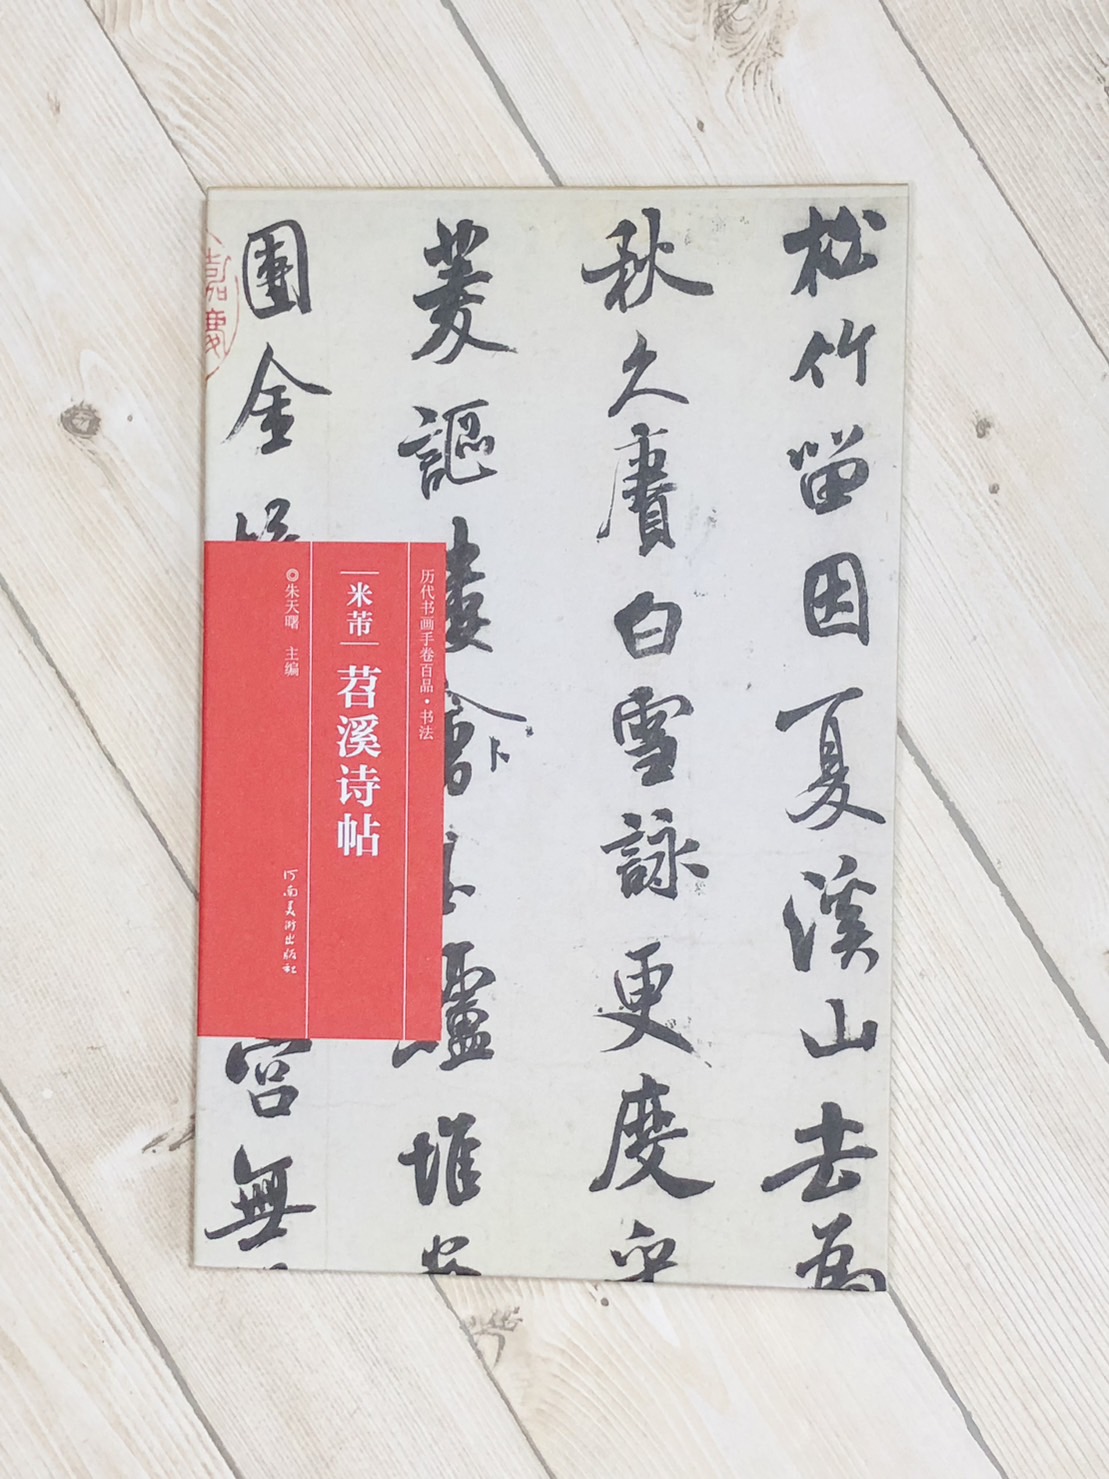 松竹留因夏溪山去為
秋久賡白雪詠更度采
菱謳縷會卜玉鱸堆案
團金
宮無
嘉慶
历代书画手卷百品·书法
米芾 苕溪诗帖
◎朱天曙 主编
河南美术出版社